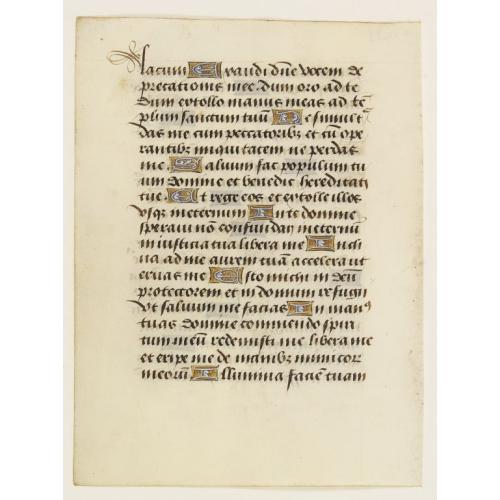 lacum E xaudi dñe vocem de
precationis mee. dum oro ad te
Dum extollo manus meas ad tẽ
plum sanctum tuũ N e simul t̃
das me cum peccatoribz et cũ ope
rantibz iniquitatem ne perdas
me. S aluum fac populum tu
um domine et benedic hereditati
tue. E t rege eos et extolle illos
vsqz ineternum I n te domine
speraui nõ confundar ineternũ
in iusticia tua libera me I ncli
na ad me aurem tuã accelera ut
eruas me E sto michi in deũ
protectorem et in domum refugii
vt saluum me facias I n manꝰ
tuas domine commendo spiri
tum meũ redemisti me libera me
et eripe me de manibz inimicor
meorũ I llumina faciẽ tuam